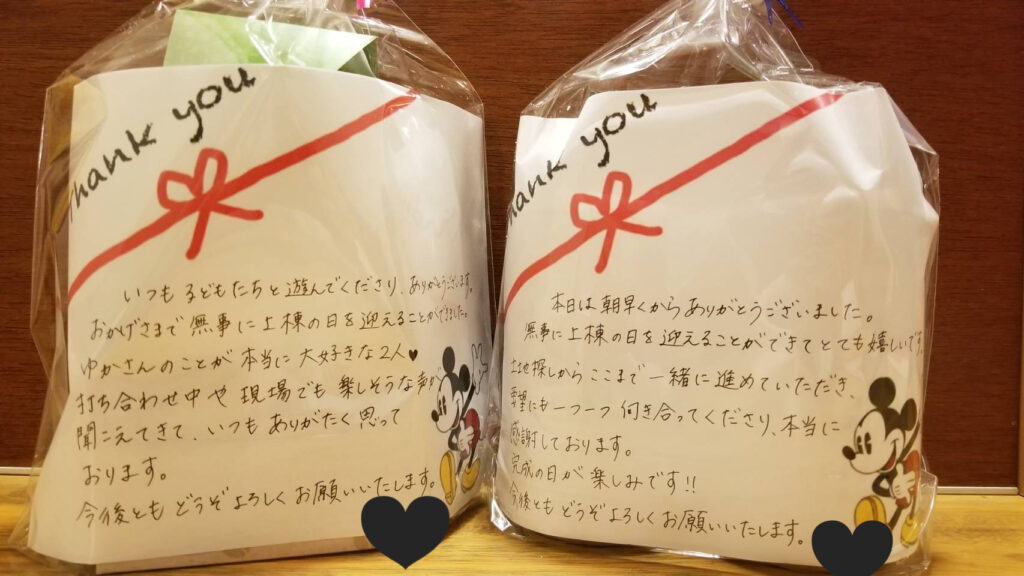 Thank you
いつも子どもたちと遊んでくださり、ありがとうございます。
おかげさまで無事に上棟の日を迎えることができました。
ゆかさんのことが本当に大好きな2人♥
打ち合わせ中や現場でも楽しそうな声が
聞こえてきて、いつもありがたく思って
おります。
今後ともどうぞよろしくお願いいたします。
Thank you
本日は朝早くからありがとうございました。
無事に上棟の日を迎えることができてとても嬉しいです。
土地探しからここまで一緒に進めていただき、
要望にも一つ一つ向き合ってくださり、本当に
感謝しております。
完成の日が楽しみです!!
今後ともどうぞよろしくお願いいたします。